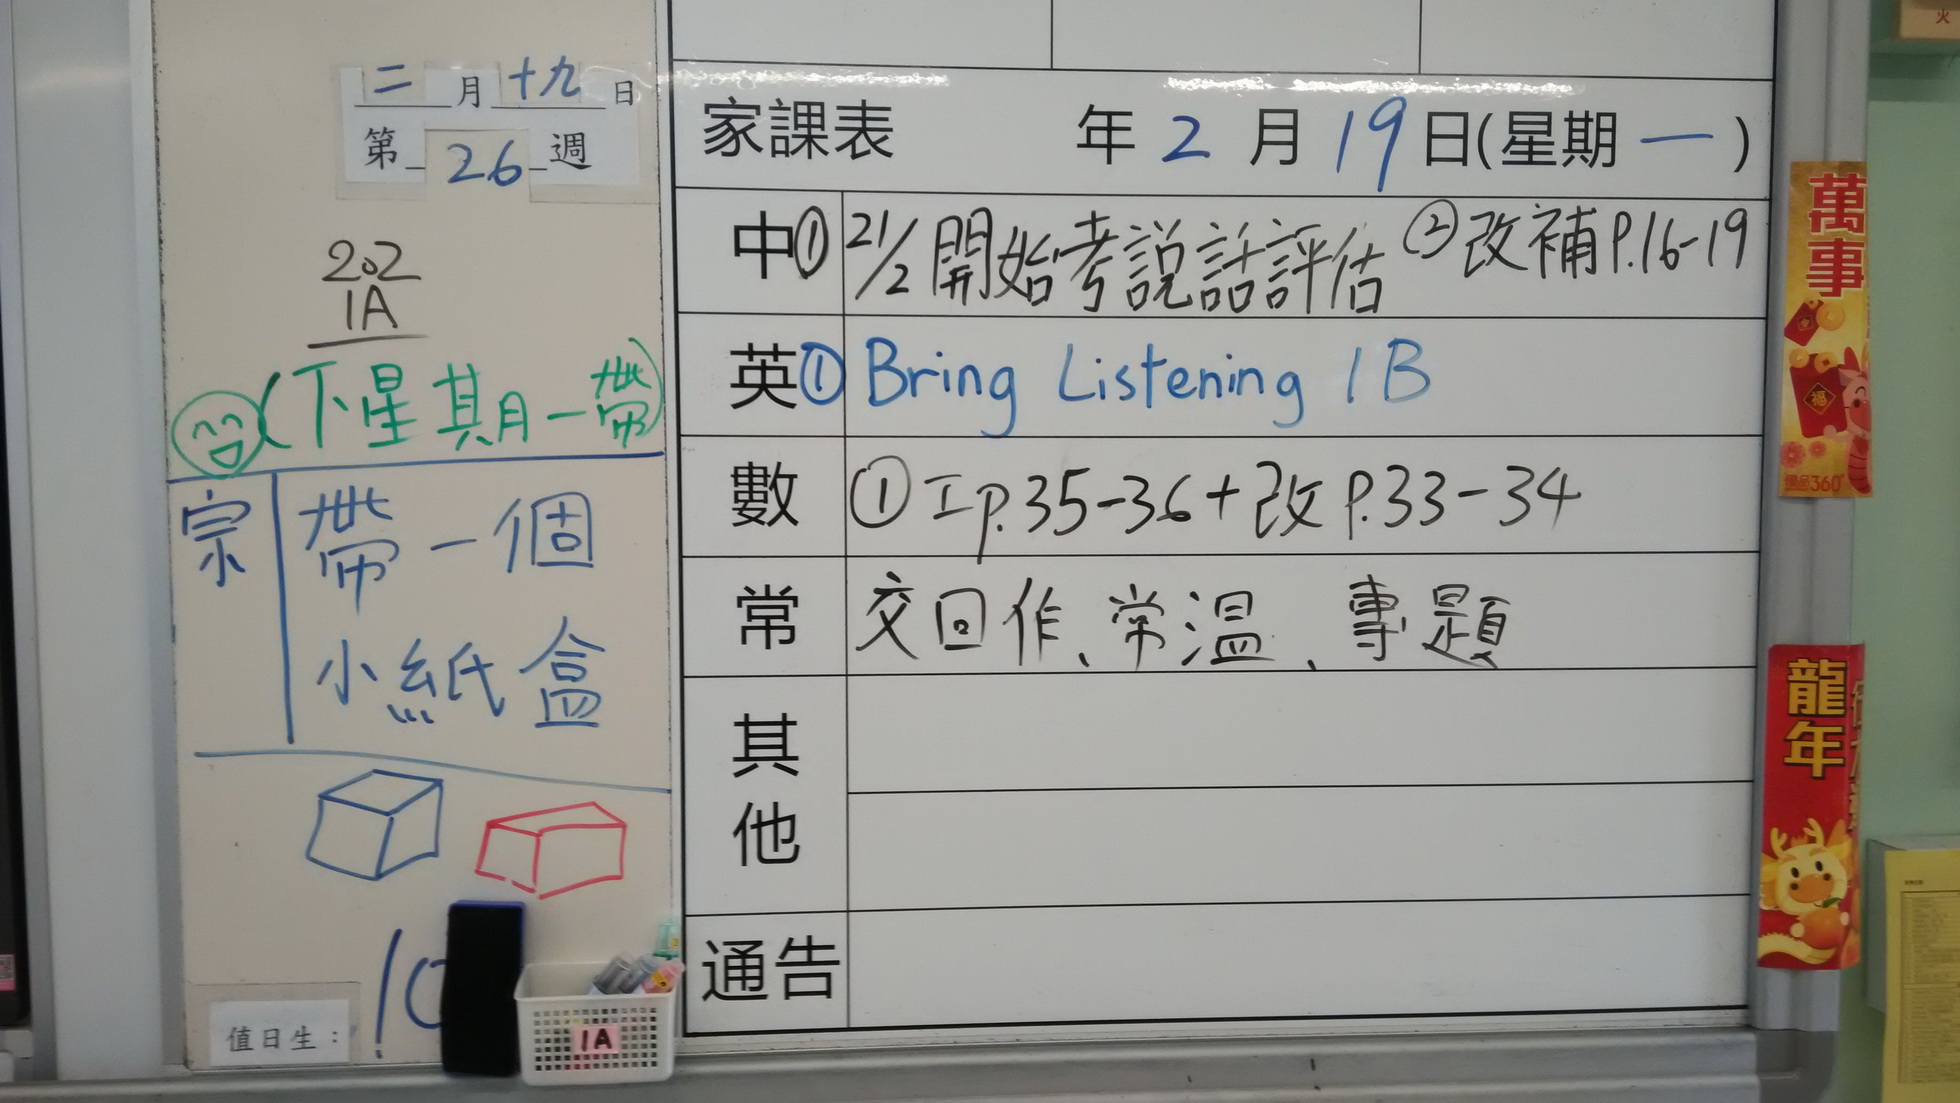 二月十九日
第26週
202
1A
(下星期一帶)
宗 帶一個
小紙盒
值日生：
1A
家課表 年2月19日(星期一)
中 ① 21/2 開始考說話評估 ② 改補P.16-19
英 ① Bring Listening 1B
數 ① 工p.35-36+改P.33-34
常 交回作、常溫、專題
其他
通告
萬事
福
龍年
火